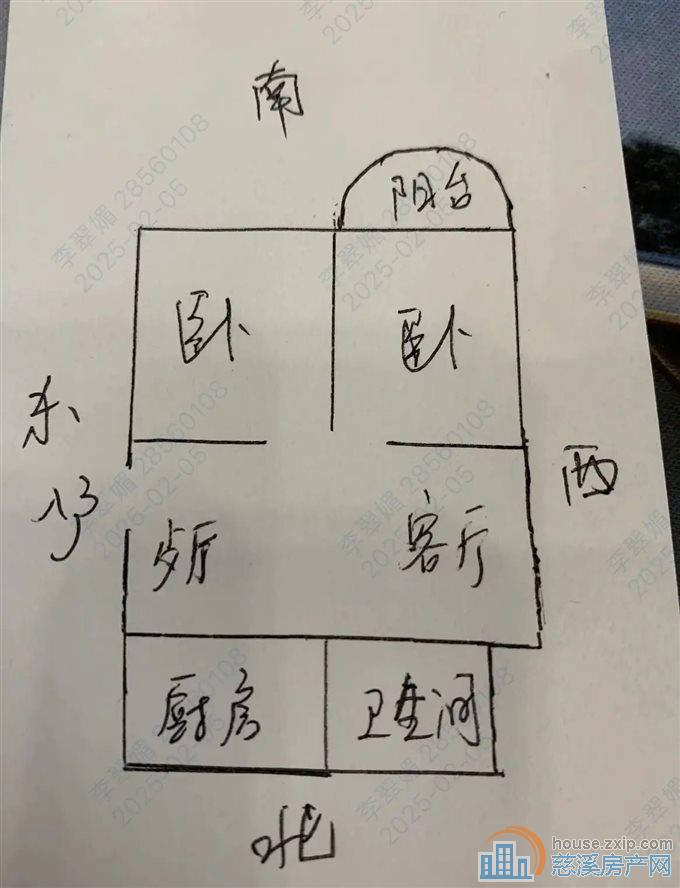 南
阳台
卧
卧
东
门
西
歺厅
客厅
厨房
卫生间
北
李翠媚 28560108
2025-02-05
house.zxip.com
慈溪房产网